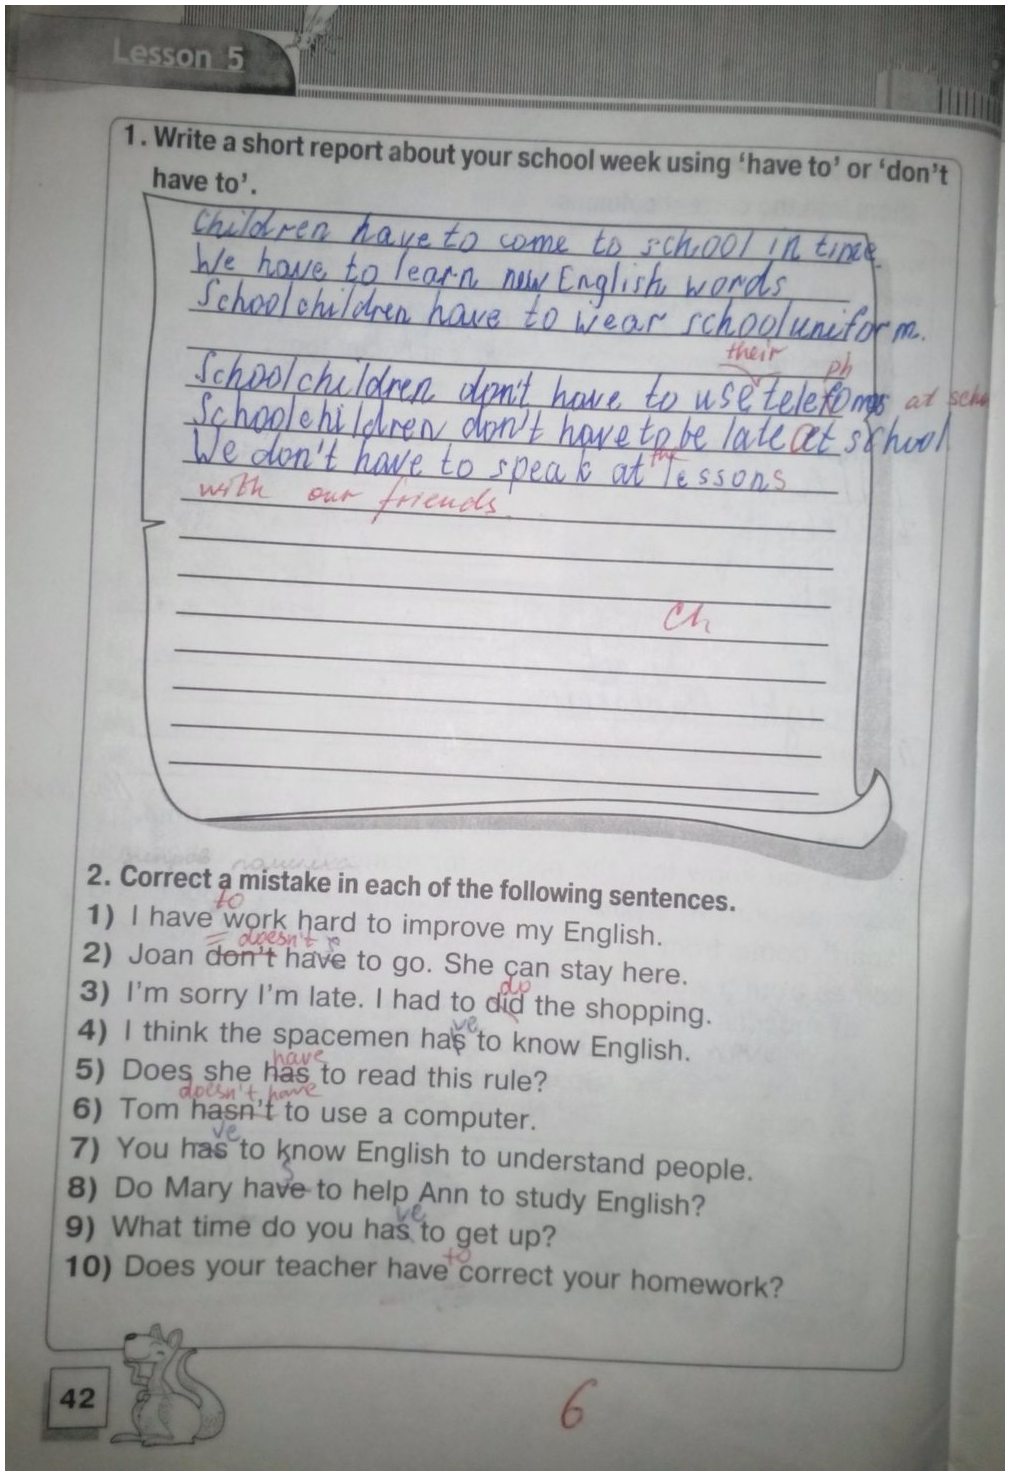 Lesson 5
1. Write a short report about your school week using 'have to' or 'don't
have to'.
Children have to come to school in time.
We have to learn new English words
Schoolchildren have to wear school uniform.
their ph
Schoolchildren don't have to use telefomes at
Schoolchildren don't have to be late at school
the
We don't have to speak at lessons
with our friends.
Ch
2. Correct a mistake in each of the following sentences.
to
1) I have work hard to improve my English.
doesn't
2) Joan don't have to go. She can stay here.
do
3) I'm sorry I'm late. I had to did the shopping.
ve
4) I think the spacemen has to know English.
have
5) Does she has to read this rule?
doesn't have
6) Tom hasn't to use a computer.
ve
7) You has to know English to understand people.
s
8) Do Mary have to help Ann to study English?
ve
9) What time do you has to get up?
to
10) Does your teacher have correct your homework?
42
6